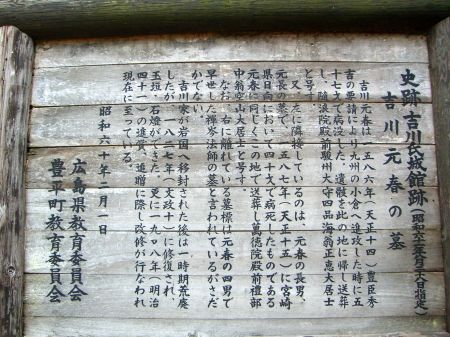 史跡 吉川氏城館跡(昭和六十一年八月二十八日指定)
吉川元春の墓
吉川元春は一五八六年(天正十四)豊臣秀
吉の要請により九州の小倉へ進攻した時に五
十七才で病没した。遺骸を此の地に帰し送葬
し、随浪院殿前駿州太守四品海翁正恵大居士
と号す。
又、左に隣接しているのは、元春の長男、
元長の墓で、一五八七年(天正十五)に宮崎
県日向において四十才で病死したものである
元春と同じくこの地に送葬し萬徳院殿前禮部
中翁空山大居士と号す。
なお、右に離れている墓標は元春の四男で
早世した、禅岑法師の墓と言われているがさだ
かでない。
吉川家が岩国へ移封された後は一時期荒廃
したが、一八二七年(文政十)に修復され
玉垣・石燈ができた。更に一九〇八年(明治
四十一)の進賞・追贈に際し改修が行なわれ
現在に至っている。
昭和六十年二月一日
広島県教育委員会
豊平町教育委員会